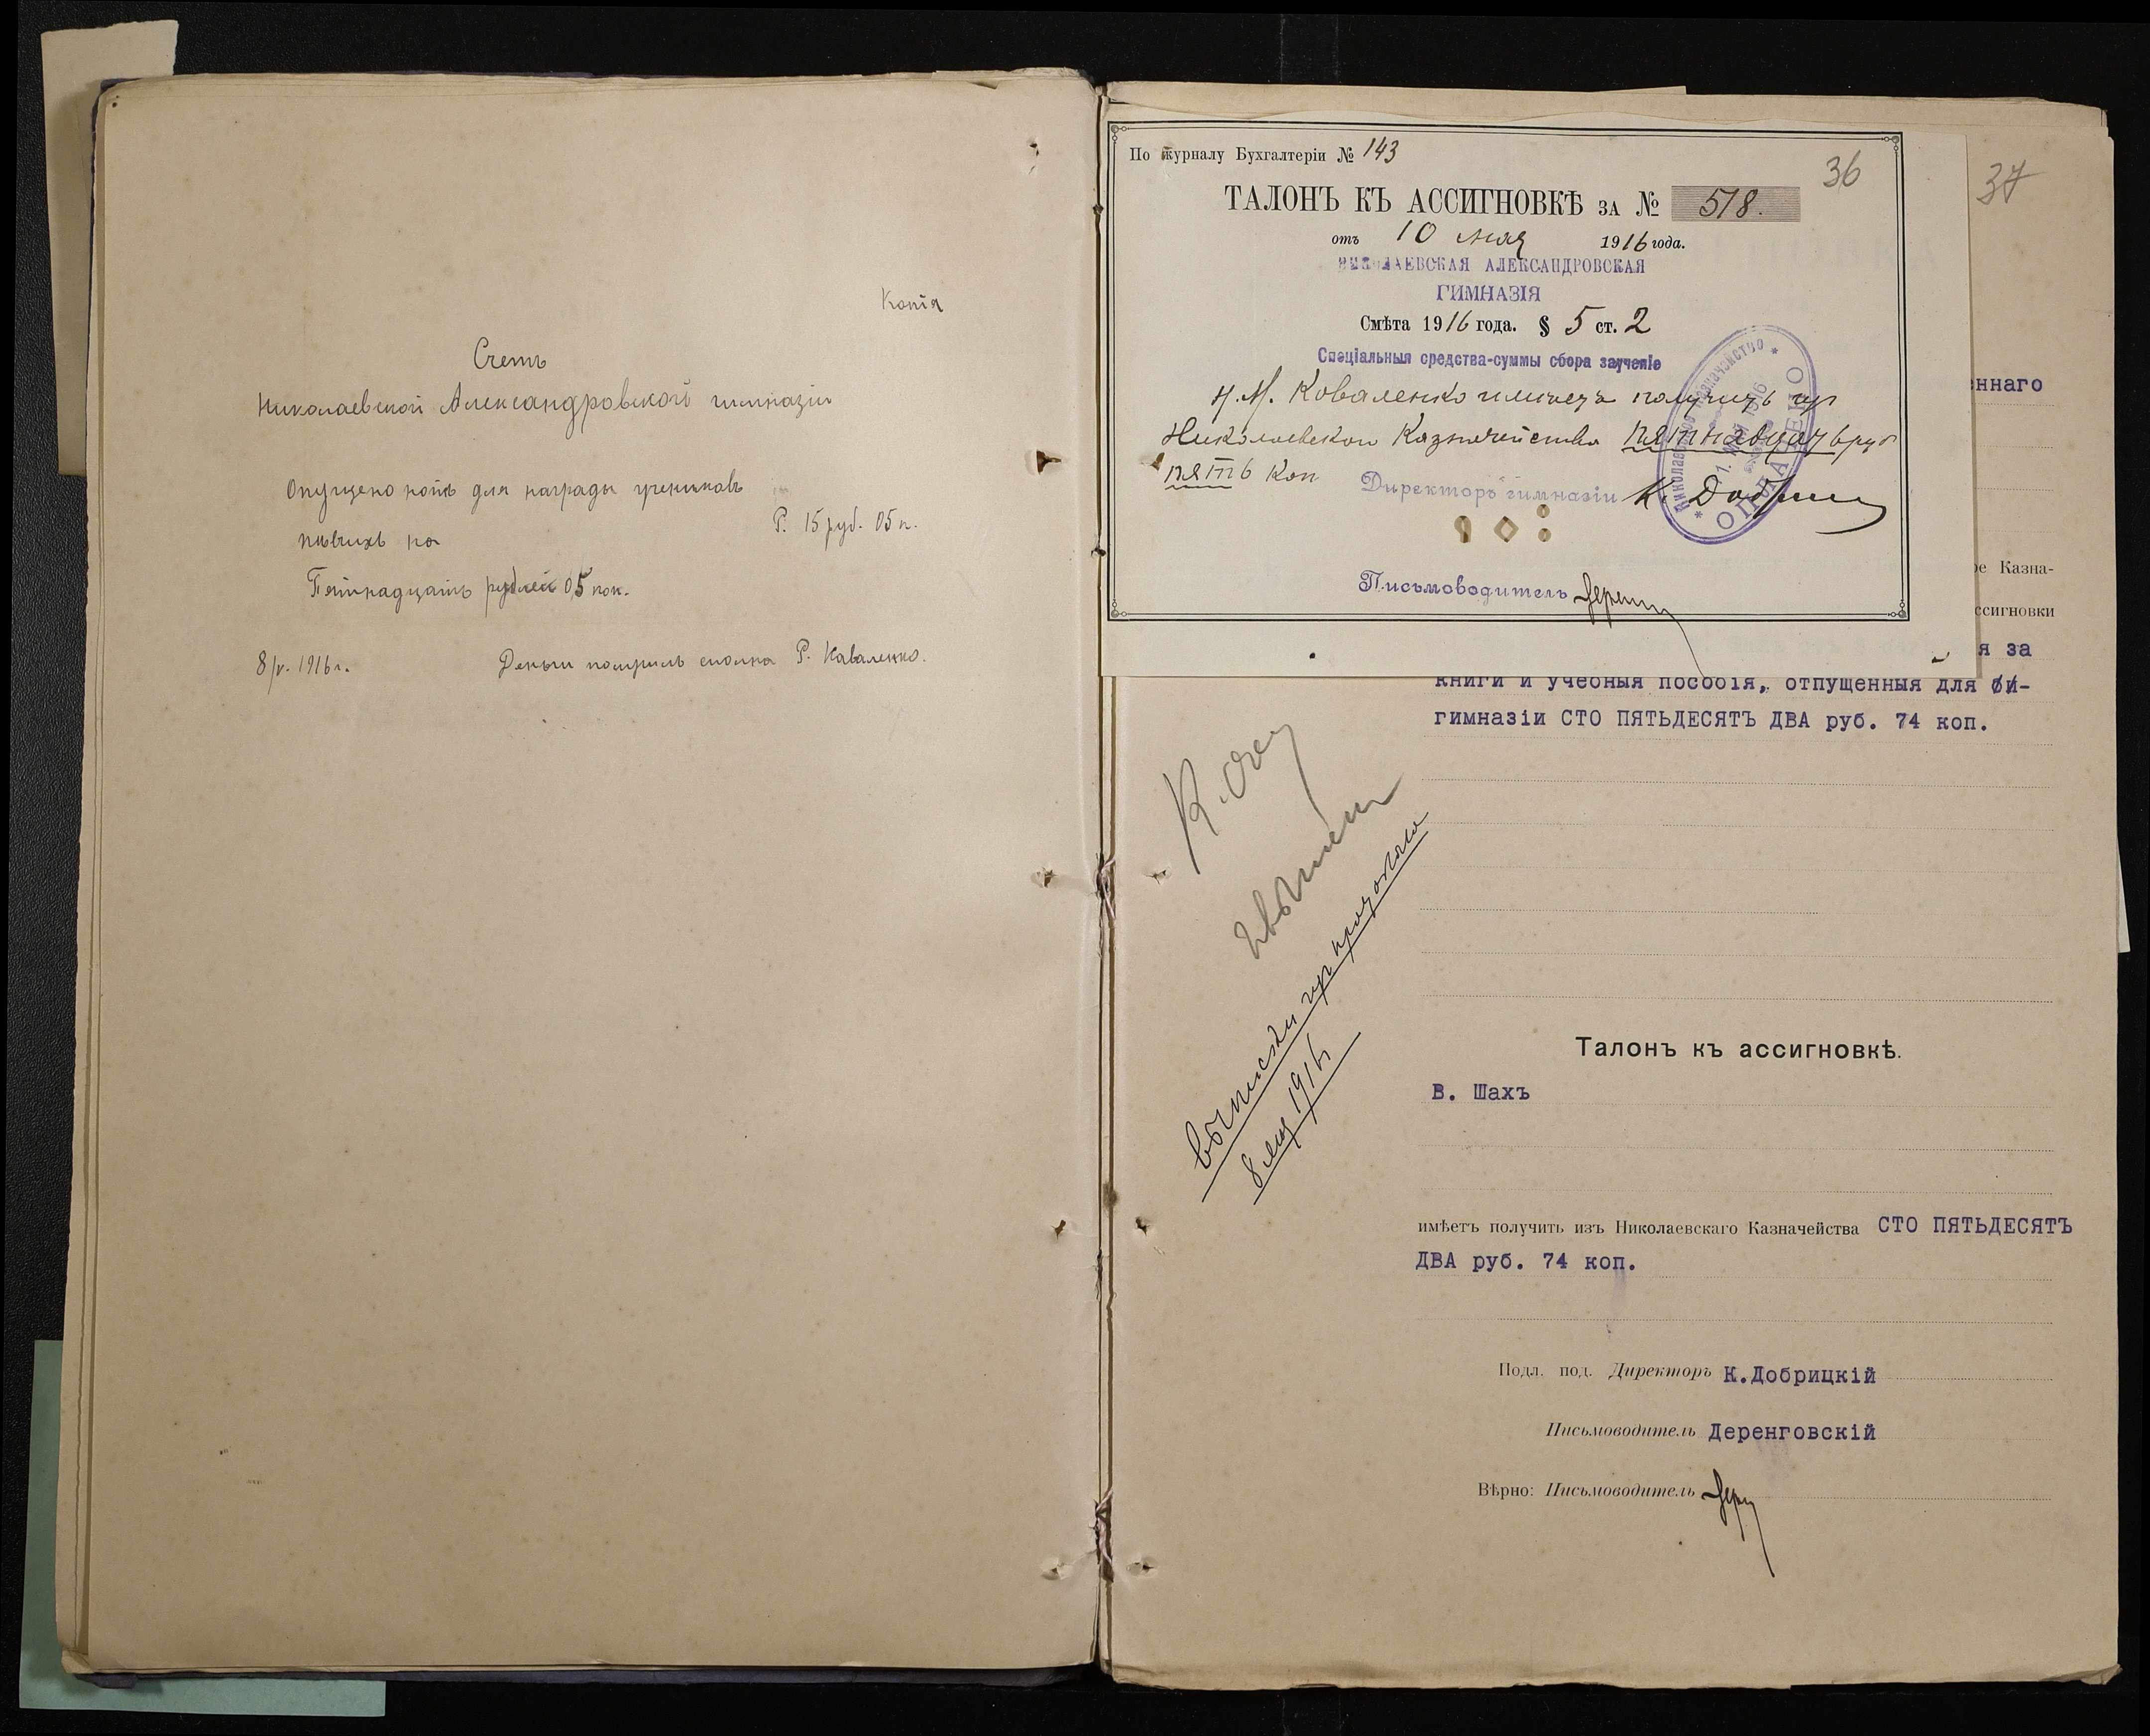 Копія
Счетъ
Николаевской Александровской гимназіи
Опущено нотъ для награды учениковъ
пѣвчихъ на
Р. 15 руб. 05 к.
Пятнадцать рублей 05 коп.
8/V. 1916 г.
Деньги получилъ сполна Р. Коваленко.
По журналу Бухгалтеріи № 143
36
37
ТАЛОНЪ КЪ АССИГНОВКѢ ЗА № 518.
отъ 10 мая 1916 года.
НИКОЛАЕВСКАЯ АЛЕКСАНДРОВСКАЯ
ГИМНАЗІЯ
Смѣта 1916 года. § 5 ст. 2
Спеціальныя средства-суммы сбора заученіе
Коваленко имѣетъ получить изъ
Николаевскаго Казначейства пятнадцать руб
пять коп
Директоръ гимназіи К. Добриц
Николаевское Казначейство
ОПЛАЧЕНО
Письмоводитель
ннаго
ре Казна-
ссигновки
я за
книги и учебныя пособія, отпущенныя для
гимназіи СТО ПЯТЬДЕСЯТЪ ДВА руб. 74 коп.
8 мая 1916 г
Талонъ къ ассигновкѣ.
В. Шахъ
имѣетъ получить изъ Николаевскаго Казначейства СТО ПЯТЬДЕСЯТЪ
ДВА руб. 74 коп.
Подл. под. Директоръ К.Добрицкій
Письмоводитель Деренговскій
Вѣрно: Письмоводитель